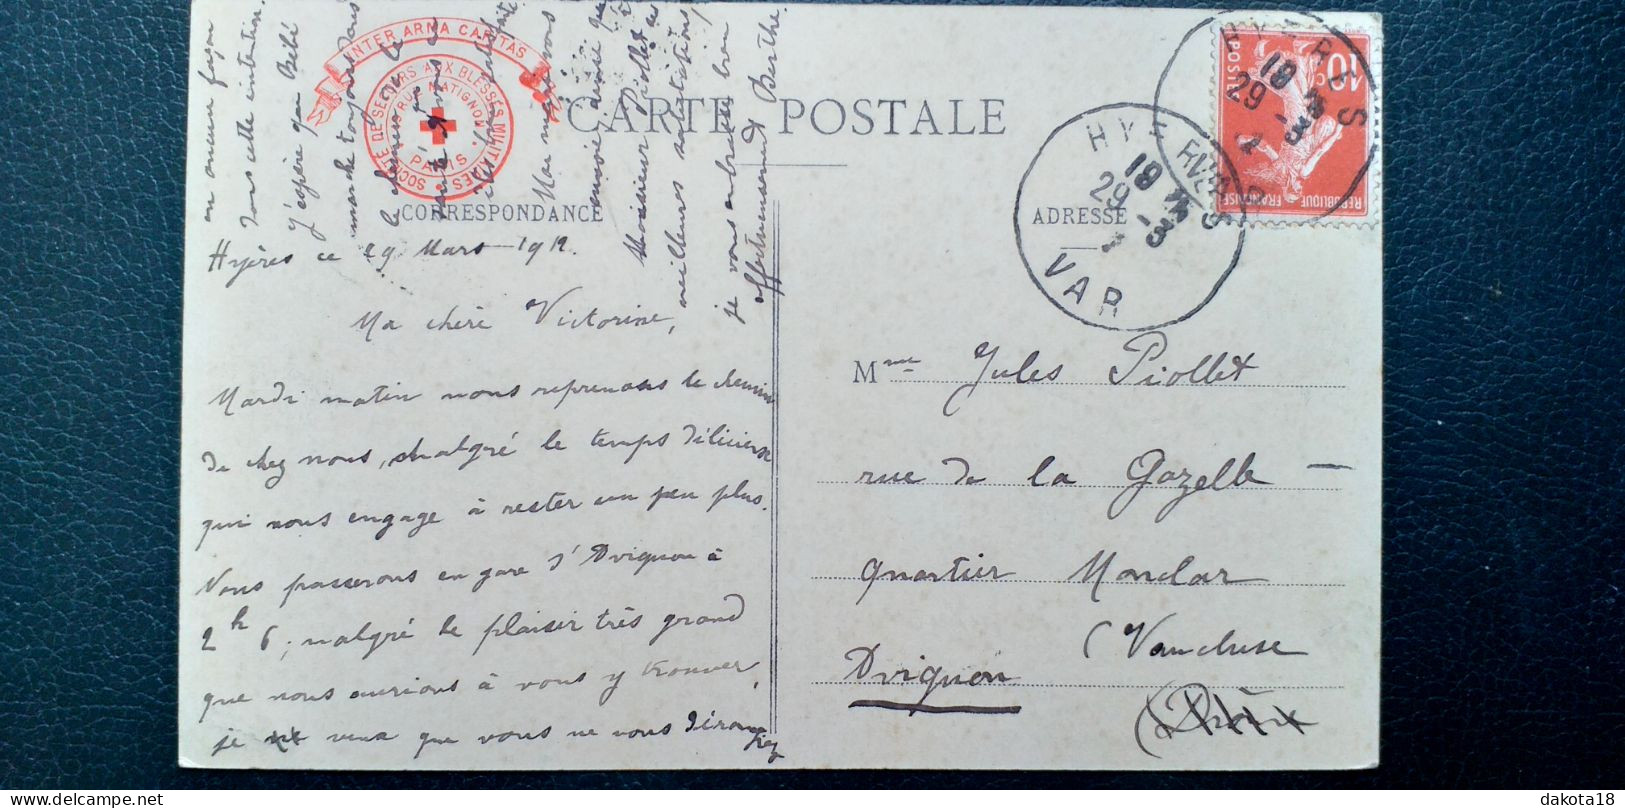 CARTE POSTALE
CORRESPONDANCE
ADRESSE
INTER ARMA CARITAS
SOCIÉTÉ DE SECOURS AUX BLESSÉS MILITAIRES
RUE MATIGNON
PARIS
Hyères ce 29 Mars 1912.
Ma chère Victorine,
Mardi matin nous reprenons le chemin
de chez nous, malgré le temps délicieux
qui nous engage à rester un peu plus.
Nous passerons en gare d'Avignon à
2h 6; malgré le plaisir très grand
que nous aurions à vous y trouver,
je veux que vous ne vous dérangiez
en aucune façon
dans cette intention.
J'espère que Bébé
marche toujours dans
le chemin de la
santé & vous
Mon mari vous
envoie ainsi que
Monsieur Piollet ses
meilleures salutations,
je vous embrasse bien
affectueusement Berthe.
HYÈRES
19
29 -3
VAR
HYÈRES
19
29 -3
10
POSTES
REPUBLIQUE FRANÇAISE
Mme Jules Piollet
rue de la Gazelle
quartier Monclar
Avignon
(Vaucluse
dakota18